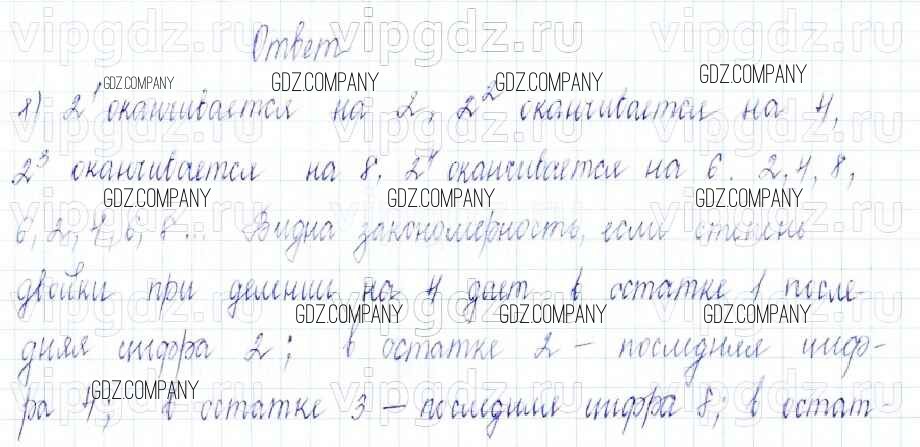 Ответ
1) 2¹ оканчивается на 2, 2² оканчивается на 4,
2³ оканчивается на 8, 2⁴ оканчивается на 6. 2, 4, 8,
6, 2, 4, 6, 8... Видна закономерность, если степень
двойки при делении на 4 дает в остатке 1 после-
дняя цифра 2; в остатке 2 – последняя циф-
ра 4; в остатке 3 – последняя цифра 8; в остат-
GDZ.COMPANY
GDZ.COMPANY
GDZ.COMPANY
GDZ.COMPANY
GDZ.COMPANY
GDZ.COMPANY
GDZ.COMPANY
GDZ.COMPANY
GDZ.COMPANY
GDZ.COMPANY
GDZ.COMPANY
vipgdz.ru